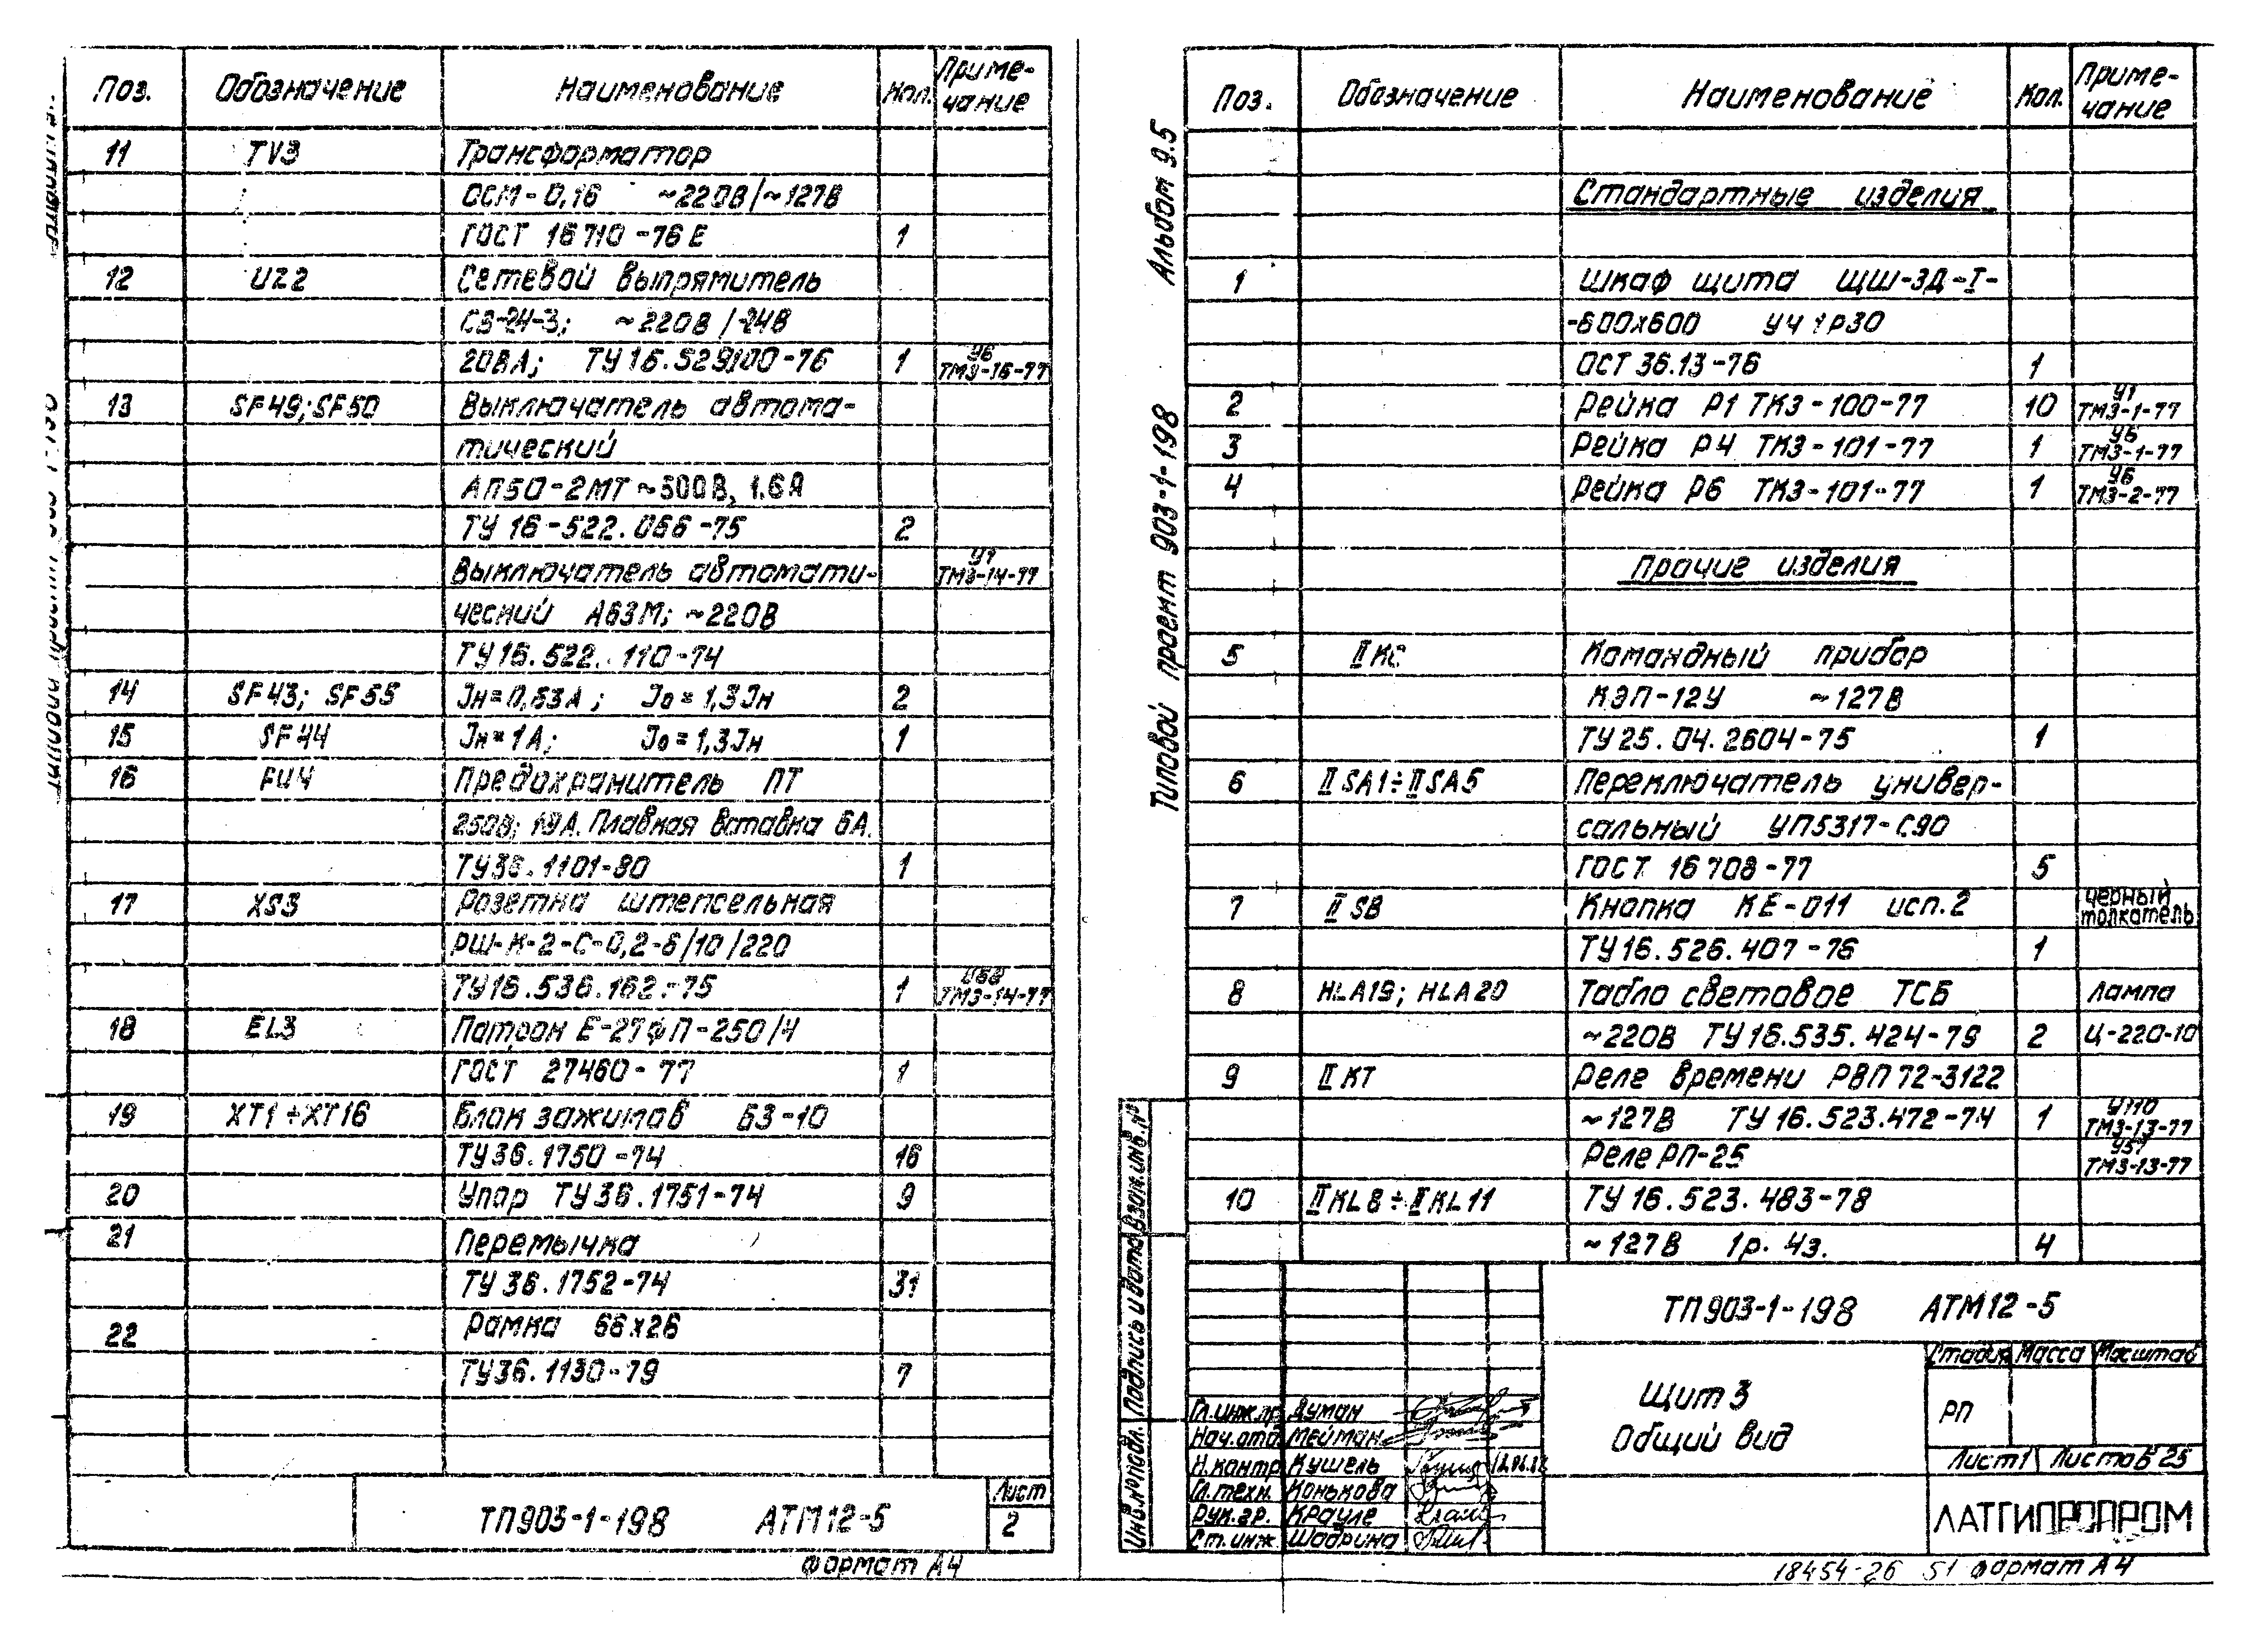 Поз. Обозначение Наименование Кол. Приме-
чание
11 TV3 Трансформатор
ОСМ-0,16 ~220В/~127В
ГОСТ 16710-76Е 1
12 UZ2 Сетевой выпрямитель
СВ-24-3; ~220В/-24В
20ВА; ТУ16.529.100-76 1 У6
ТМ3-16-77
13 SF49; SF50 Выключатель автома-
тический
АП50-2МТ ~500В, 1.6А
ТУ 16-522.066-75 2
Выключатель автомати- У1
ТМ3-14-77
ческий А63М; ~220В
ТУ16.522.110-74
14 SF43; SF55 Jн=0,63А; Jо=1,3Jн 2
15 SF44 Jн=1А; Jо=1,3Jн 1
16 FU4 Предохранитель ПТ
250В; 10А. Плавкая вставка 6А.
ТУ36.1101-80 1
17 XS3 Розетка штепсельная
РШ-К-2-С-0,2-6/10/220
ТУ16.536.162-75 1
ТМ3-14-77
18 EL3 Патрон Е-27ФП-250/4
ГОСТ 27460-77 1
19 XT1÷XT16 Блок зажимов БЗ-10
ТУ36.1750-74 16
20 Упор ТУ36.1751-74 9
21 Перемычка
ТУ36.1752-74 31
22 Рамка 66х26
ТУ36.1130-79 7
ТП903-1-198 АТМ12-5 Лист
2
Формат А4
Альбом 9.5
Типовой проект 903-1-198
Поз. Обозначение Наименование Кол. Приме-
чание
Стандартные изделия
1 Шкаф щита ЩШ-ЗД-I-
-600х600 У4 1Р30
ОСТ 36.13-76 1
2 Рейка Р1 ТК3-100-77 10 У1
ТМ3-1-77
3 Рейка Р4 ТК3-101-77 1 У5
ТМ3-1-77
4 Рейка Р6 ТК3-101-77 1 У6
ТМ3-2-77
Прочие изделия
5 IIКС Командный прибор
КЭП-12У ~127В
ТУ25.04.2604-75 1
6 IISA1÷IISA5 Переключатель универ-
сальный УП5317-С90
ГОСТ 16708-77 5
7 IISB Кнопка КЕ-011 исп.2 черный
толкатель
ТУ16.526.407-76 1
8 HLA19; HLA20 Табло световое ТСБ Лампа
~220В ТУ16.535.424-79 2 Ц-220-10
9 IIKT Реле времени РВП72-3122
~127В ТУ16.523.472-74 1 У110
ТМ3-13-77
Реле РП-25 У57
ТМ3-13-77
10 IIKL8÷IIKL11 ТУ16.523.483-78
~127В 1р. 4з. 4
Инв.№подл. Подпись и дата Взам.инв.№
ТП903-1-198 АТМ12-5
Щит 3
Общий вид
Стадия Масса Масштаб
РП
Лист 1 Листов 25
ЛАТГИПРОПРОМ
Гл.инж.пр. Думан
Нач.отд. Мейман
Н.контр. Кушель
Гл.техн. Конькова
Рук.гр. Крауле
Ст.инж. Шадрина
18454-26 51 Формат А4